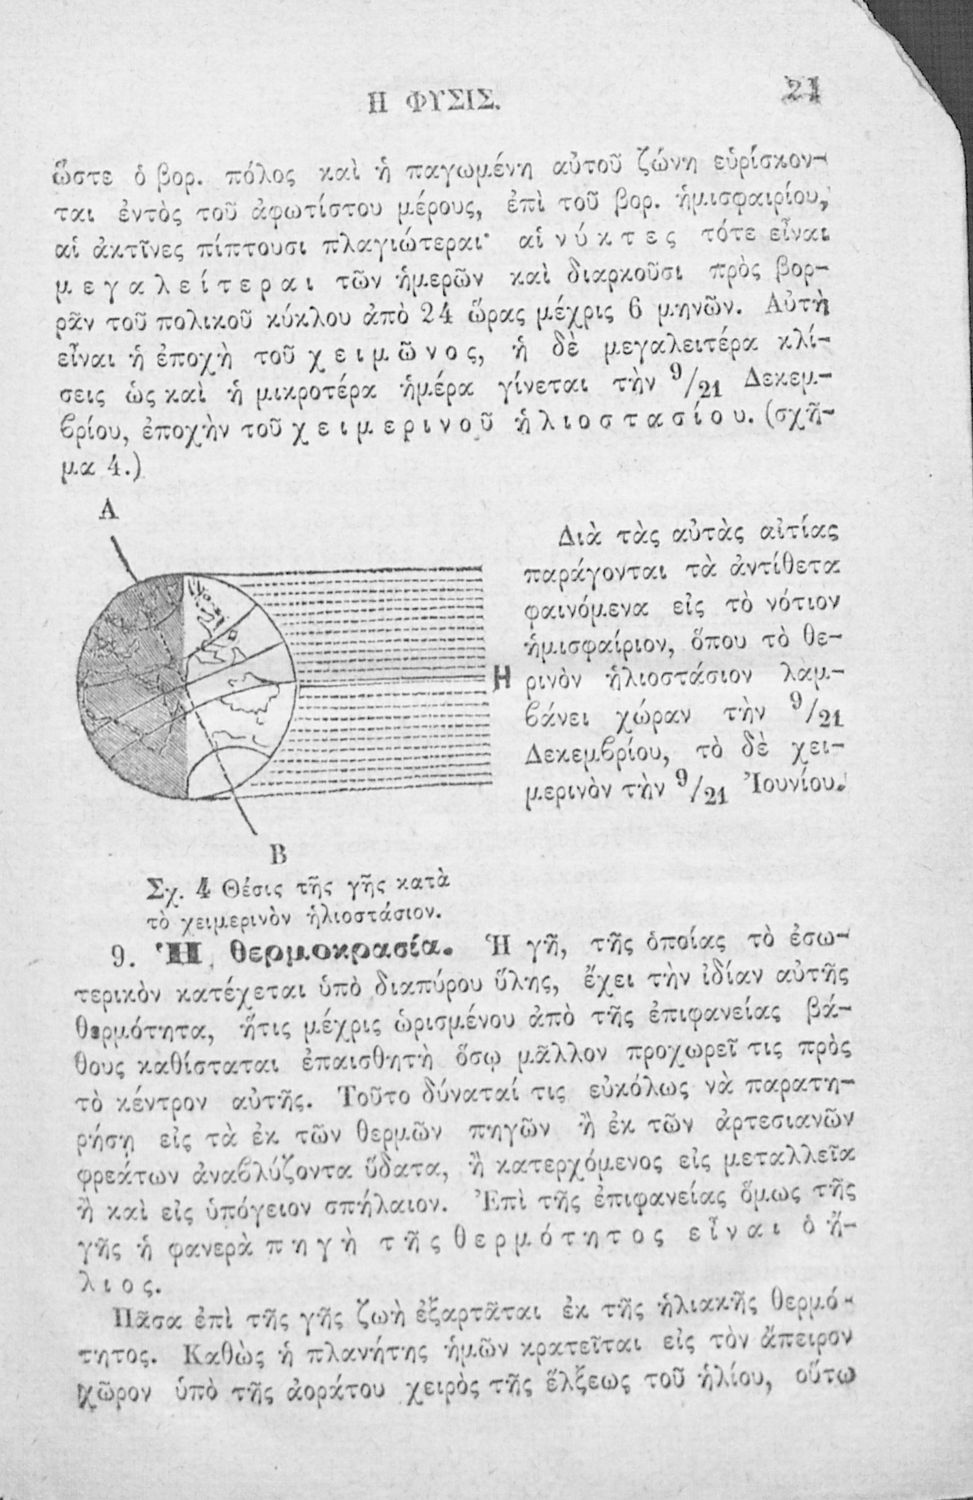 Η ΦΥΣΙΣ.
21
ὥστε ὁ βορ. πόλος καὶ ἡ παγωμένη αὐτοῦ ζώνη εὑρίσκον-
ται ἐντὸς τοῦ ἀφωτίστου μέρους, ἐπὶ τοῦ βορ. ἡμισφαιρίου,
αἱ ἀκτῖνες πίπτουσι πλαγιώτεραι· αἱ νύκτες τότε εἶναι
μεγαλείτεραι τῶν ἡμερῶν καὶ διαρκοῦσι πρὸς βορ-
ρᾶν τοῦ πολικοῦ κύκλου ἀπὸ 24 ὥρας μέχρις 6 μηνῶν. Αὐτὴ
εἶναι ἡ ἐποχὴ τοῦ χειμῶνος, ἡ δὲ μεγαλειτέρα κλί-
σεις ὡς καὶ ἡ μικροτέρα ἡμέρα γίνεται τὴν 9/21 Δεκεμ-
βρίου, ἐποχὴν τοῦ χειμερινοῦ ἡλιοστασίου. (σχῆ-
μα 4.)
Α
Η
Β
Διὰ τὰς αὐτὰς αἰτίας
παράγονται τὰ ἀντίθετα
φαινόμενα εἰς τὸ νότιον
ἡμισφαίριον, ὅπου τὸ θε-
ρινὸν ἡλιοστάσιον λαμ-
βάνει χώραν τὴν 9/21
Δεκεμβρίου, τὸ δὲ χει-
μερινὸν τὴν 9/21 Ἰουνίου.
Σχ. 4 Θέσις τῆς γῆς κατὰ
τὸ χειμερινὸν ἡλιοστάσιον.
9. Ἡ θερμοκρασία. Ἡ γῆ, τῆς ὁποίας τὸ ἐσω-
τερικὸν κατέχεται ὑπὸ διαπύρου ὕλης, ἔχει τὴν ἰδίαν αὐτῆς
θερμότητα, ἥτις μέχρις ὡρισμένου ἀπὸ τῆς ἐπιφανείας βά-
θους καθίσταται ἐπαισθητὴ ὅσῳ μᾶλλον προχωρεῖ τις πρὸς
τὸ κέντρον αὐτῆς. Τοῦτο δύναταί τις εὐκόλως νὰ παρατη-
ρήσῃ εἰς τὰ ἐκ τῶν θερμῶν πηγῶν ἢ ἐκ τῶν ἀρτεσιανῶν
φρεάτων ἀναβλύζοντα ὕδατα, ἢ κατερχόμενος εἰς μεταλλεῖα
ἢ καὶ εἰς ὑπόγειον σπήλαιον. Ἐπὶ τῆς ἐπιφανείας ὅμως τῆς
γῆς ἡ φανερὰ πηγὴ τῆς θερμότητος εἶναι ὁ ἥ-
λιος.
Πᾶσα ἐπὶ τῆς γῆς ζωὴ ἐξαρτᾶται ἐκ τῆς ἡλιακῆς θερμό-
τητος. Καθὼς ἡ πλανήτης ἡμῶν κρατεῖται εἰς τὸν ἄπειρον
χῶρον ὑπὸ τῆς ἀοράτου χειρὸς τῆς ἕλξεως τοῦ ἡλίου, οὕτω